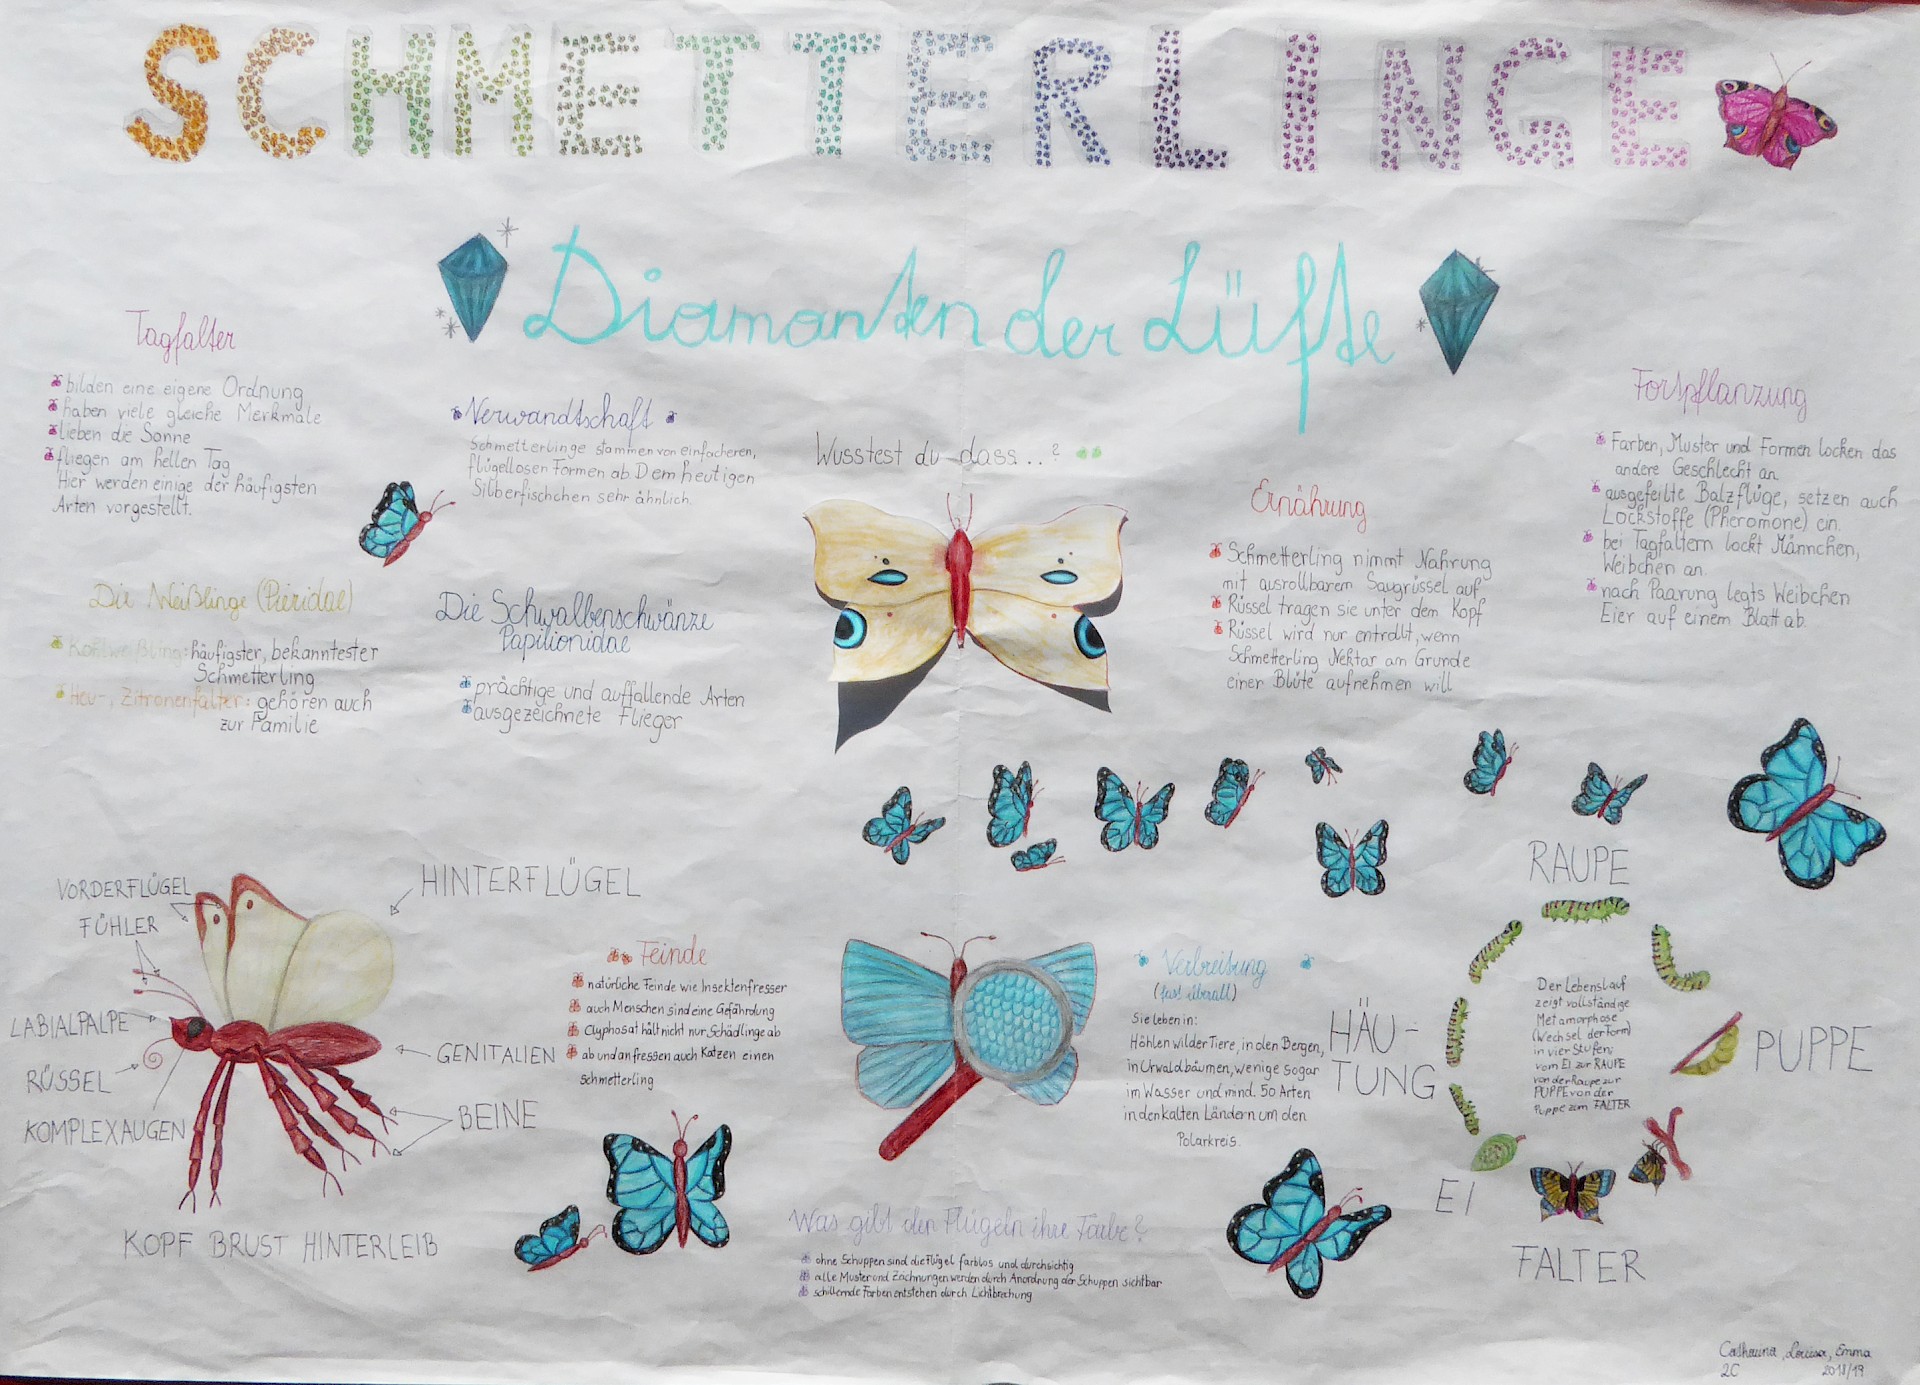 SCHMETTERLINGE
Diamanten der Lüfte
Tagfalter
bilden eine eigene Ordnung
haben viele gleiche Merkmale
lieben die Sonne
fliegen am hellen Tag
Hier werden einige der häufigsten
Arten vorgestellt.
Verwandtschaft
Schmetterlinge stammen von einfacheren,
flügellosen Formen ab. Dem heutigen
Silberfischchen sehr ähnlich.
Die Weißlinge (Pieridae)
Kohlweißling: häufigster, bekanntester
Schmetterling
Heu-, Zitronenfalter: gehören auch
zur Familie
Die Schwalbenschwänze
Papilionidae
prächtige und auffallende Arten
ausgezeichnete Flieger
Wusstest du dass...?
Ernährung
Schmetterling nimmt Nahrung
mit ausrollbarem Saugrüssel auf
Rüssel tragen sie unter dem Kopf
Rüssel wird nur entrollt, wenn
Schmetterling Nektar am Grunde
einer Blüte aufnehmen will
Fortpflanzung
Farben, Muster und Formen locken das
andere Geschlecht an
ausgefeilte Balzflüge, setzen auch
Lockstoffe (Pheromone) ein.
bei Tagfaltern lockt Männchen,
Weibchen an.
nach Paarung legts Weibchen
Eier auf einem Blatt ab.
VORDERFLÜGEL
FÜHLER
HINTERFLÜGEL
LABIALPALPE
RÜSSEL
KOMPLEXAUGEN
GENITALIEN
BEINE
KOPF BRUST HINTERLEIB
Feinde
natürliche Feinde wie Insektenfresser
auch Menschen sind eine Gefährdung
Glyphosat hält nicht nur Schädlinge ab
ab und an fressen auch Katzen einen
schmetterling
Verbreitung
(fast überall)
Sie leben in:
Höhlen wilder Tiere, in den Bergen,
in Urwaldbäumen, wenige sogar
im Wasser und mind. 50 Arten
in den kalten Ländern um den
Polarkreis.
Was gibt den Flügeln ihre Farbe?
ohne Schuppen sind die Flügel farblos und durchsichtig
alle Muster und Zeichnungen werden durch Anordnung der Schuppen sichtbar
schillernde Farben entstehen durch Lichtbrechung
RAUPE
HÄU-
TUNG
PUPPE
EI
FALTER
Der Lebenslauf
zeigt vollständige
Metamorphose
(Wechsel der Form)
in vier Stufen:
vom EI zur RAUPE
von der Raupe zur
PUPPE von der
Puppe zum FALTER
Catharina, Louisa, Emma
2C 2018/19